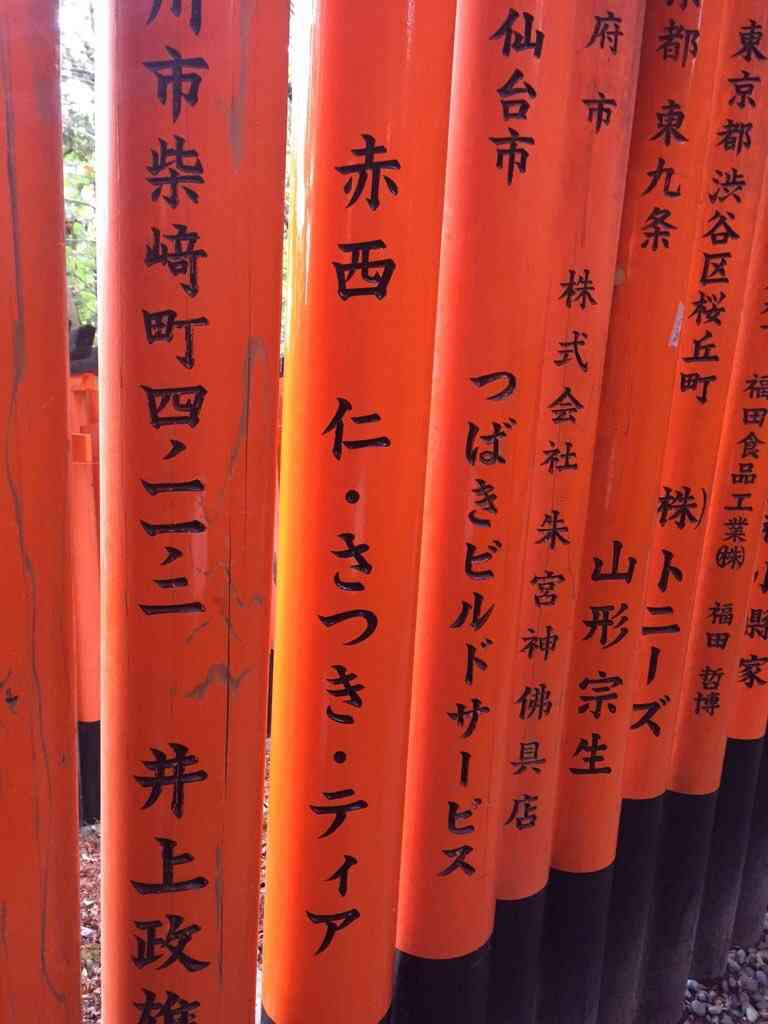 川市柴﨑町四ノ一一ノ二 井上政雄
赤西 仁・さつき・ティア
仙台市 つばきビルドサービス
府市 株式会社 朱宮神佛具店
都 東九条 山形宗生
東京都渋谷区桜丘町 株)トニーズ
福田食品工業㈱ 福田 哲博
小縣家